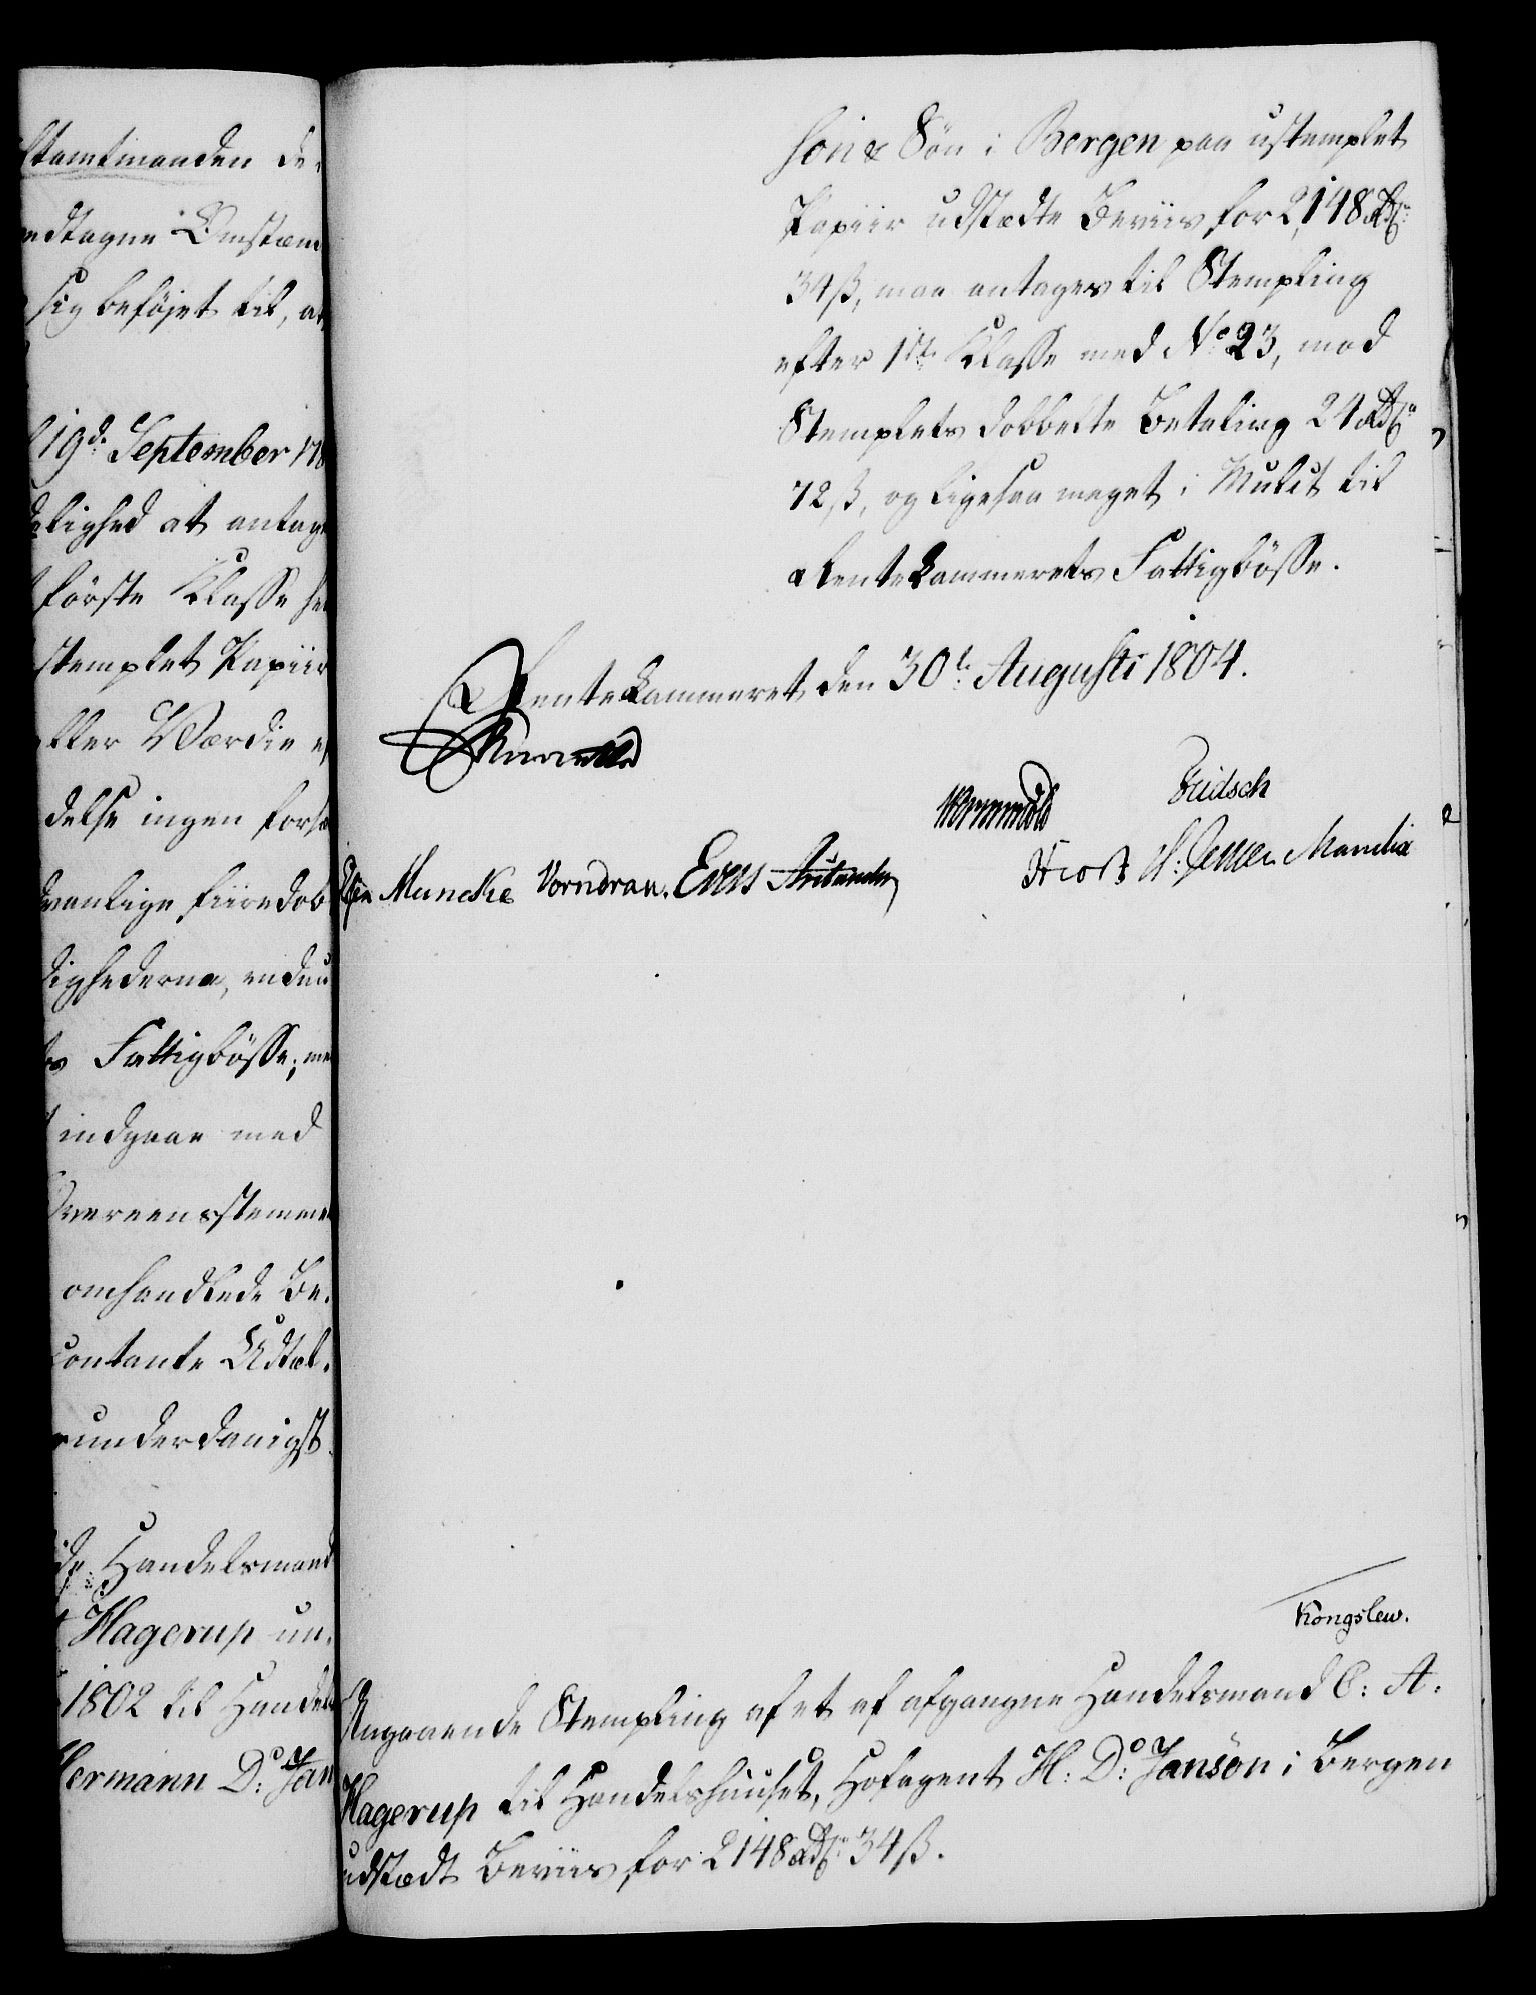 ltamtmanden de-
edtagne Omstæn
sig beföjet til, at
19de September 178
delighed at antage
förste Klasse
stemplet Papiir
eller Værdie
delse ingen
vanlige fiiredob
dighederne, endnu
ts Fattigbösse;
indgaae med
Overeensstemme
omhandlede Be-
contante Udtæl-
underdanigst
Handelsmand
Hagerup un-
1802 til Handels
Hermann D: Jan
son & Sön i Bergen paa ustemplet
Papiir udstædte Beviis for 2,148 Rdr
34 ß, maa antages til Stempling
efter 1ste Klasse med No 23, mod
Stemplets dobbelte Betaling 24 Rdr
72 ß, og ligesaa meget i Mulct til
Rentekammerets Fattigbösse.
Rentekammeret den 30te Augusti 1804.
Wormskiold Fridsch
Muncke Vorndran. Evers Hiort Mandix
Kongslew.
Angaaende Stempling af et af afgangne Handelsmand C: A:
Hagerup til Handelshuuset, Hofagent H: D: Janson i Bergen
udstædt Beviis for 2148 Rdr 34 ß.